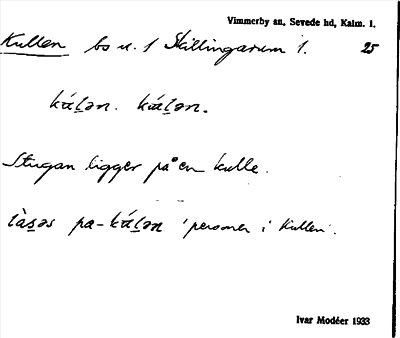 Vimmerby sn, Sevede hd, Kalm. l.
Kullen bo u. 1 Skillingarum 1. 25
kúḻən. kúḻən.
Stugan ligger på en kulle.
pa-kúḻən 'personer i Kullen'.
Ivar Modéer 1933